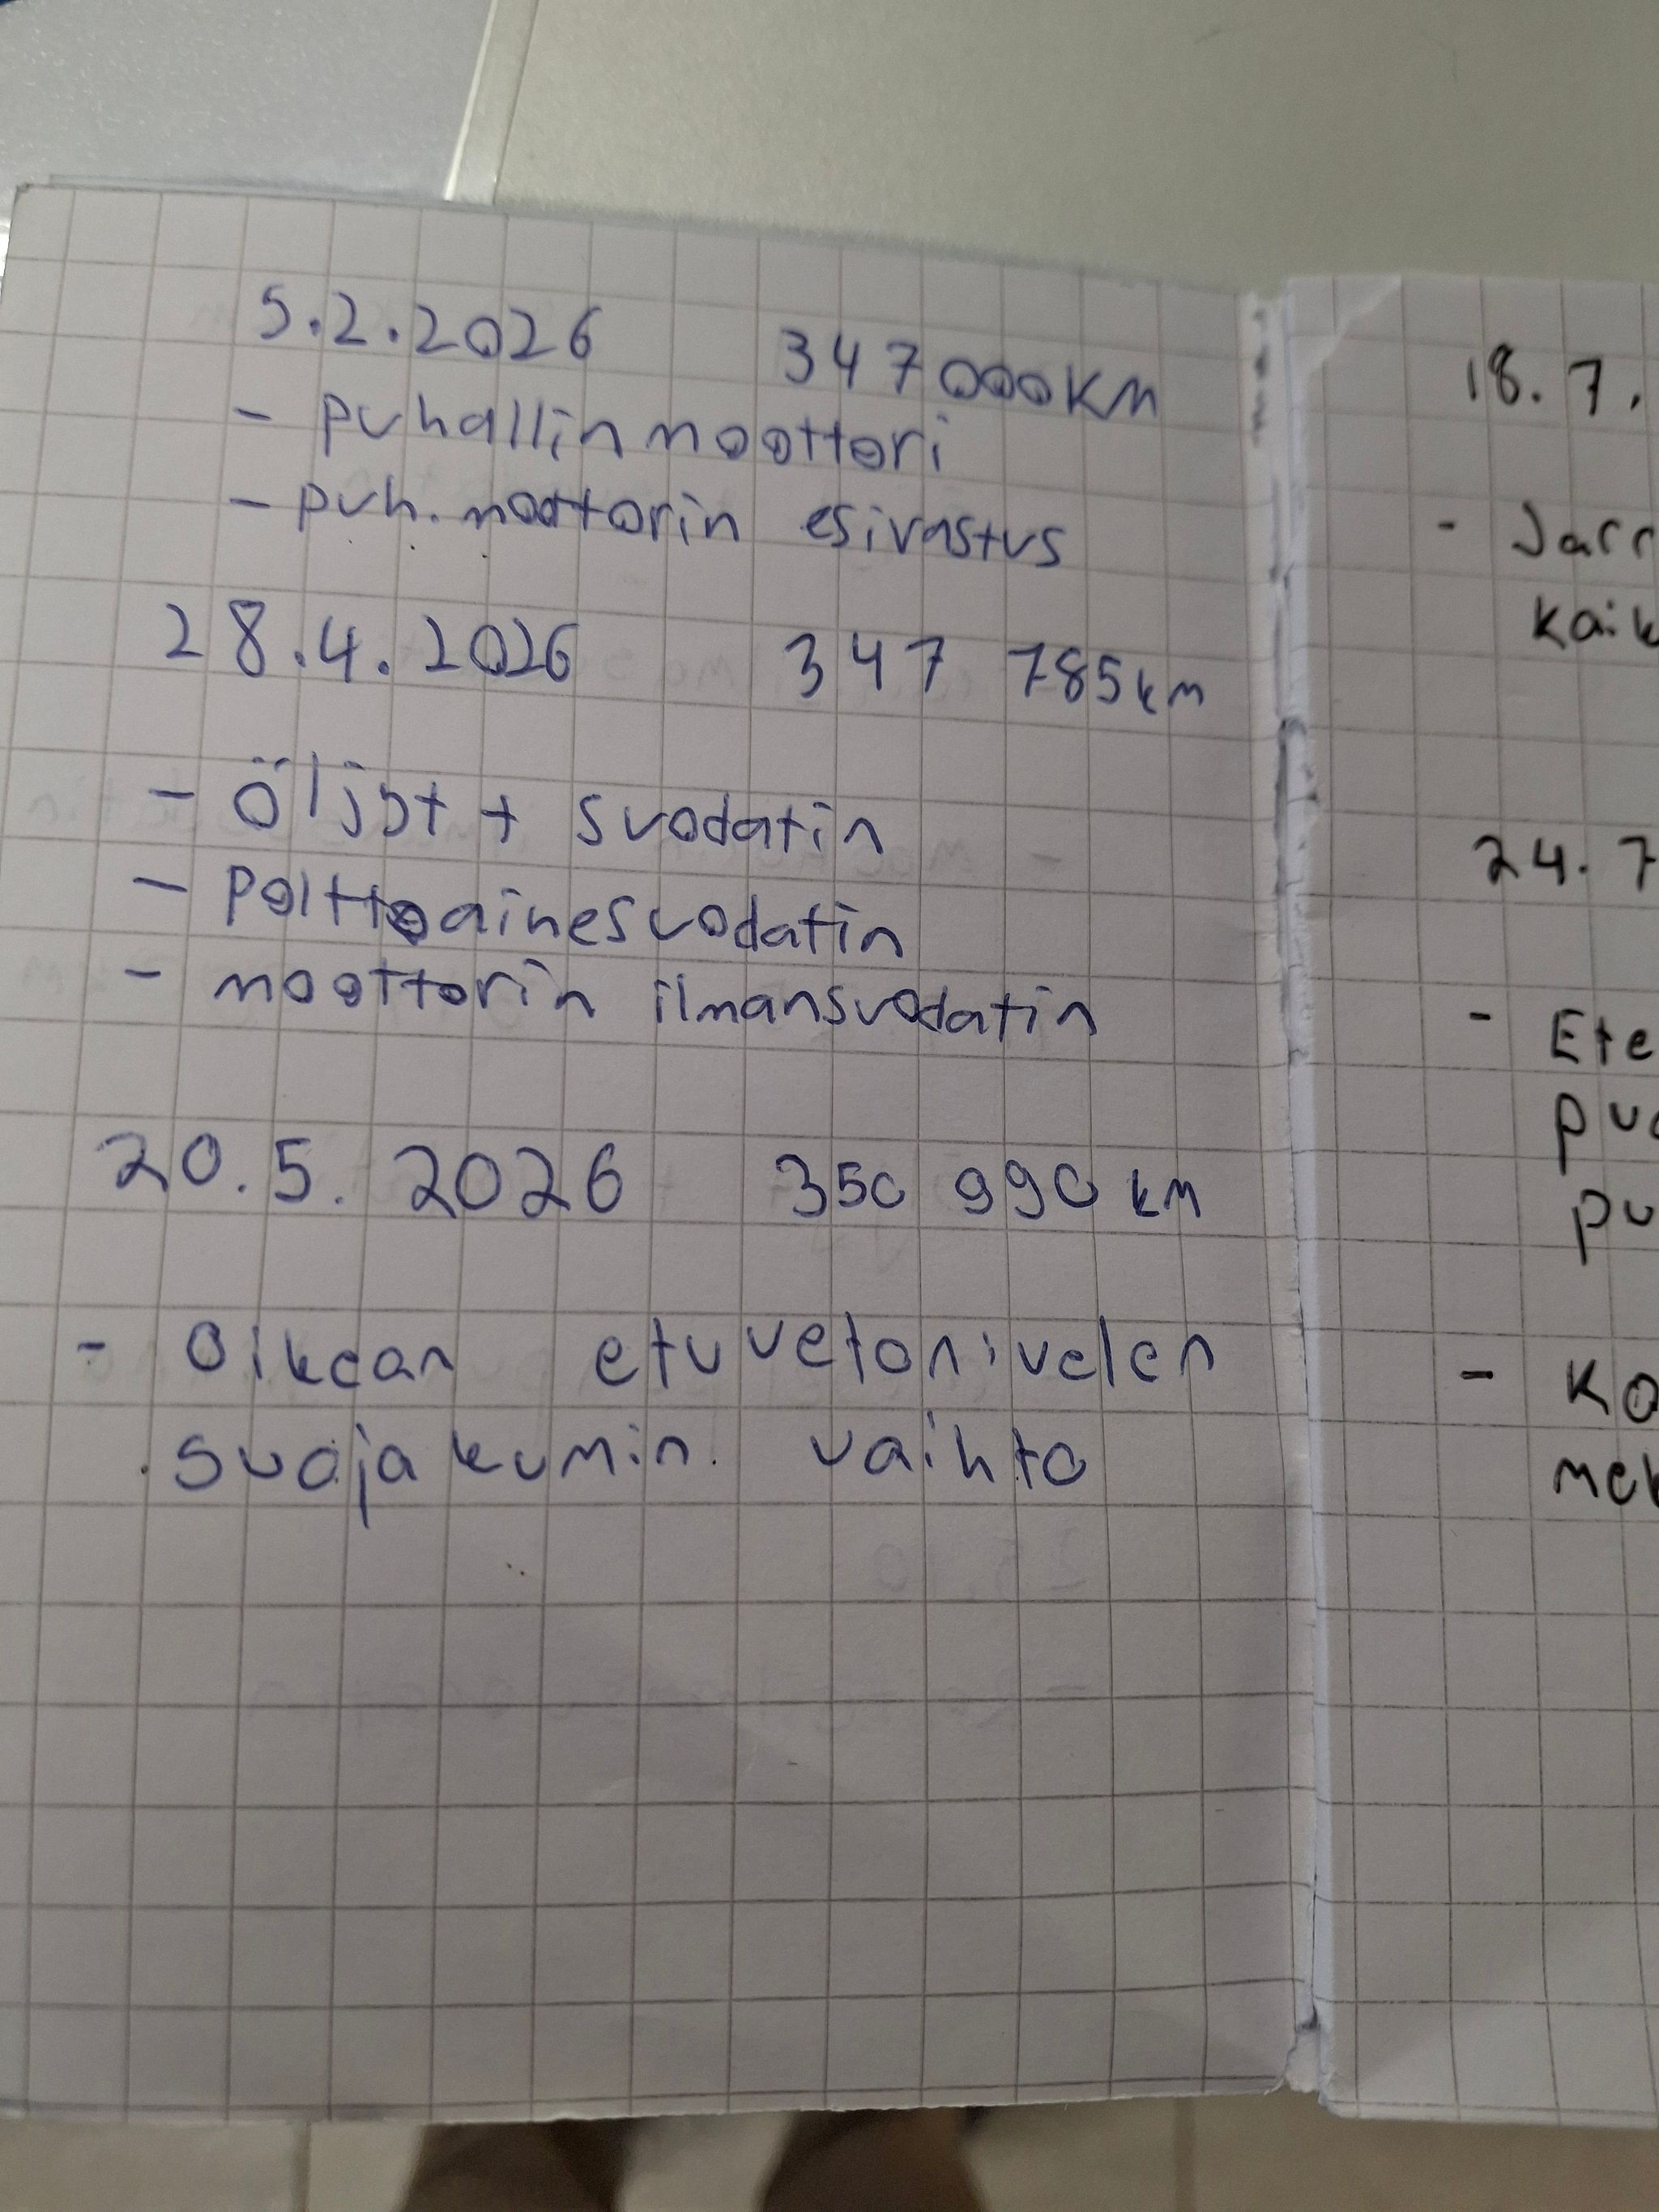 5.2.2026 347000KM
- puhallinmoottori
- puh. moottorin esivastus
28.4.2026 347 785km
- öljyt + suodatin
- Polttoainesuodatin
- moottorin ilmansuodatin
20.5.2026 350 990 km
- Oikean etuvetonivelen
suojakumin vaihto
18.7.
- Jarr
kaik
24.7
- Ete
puo
pu
- Ko